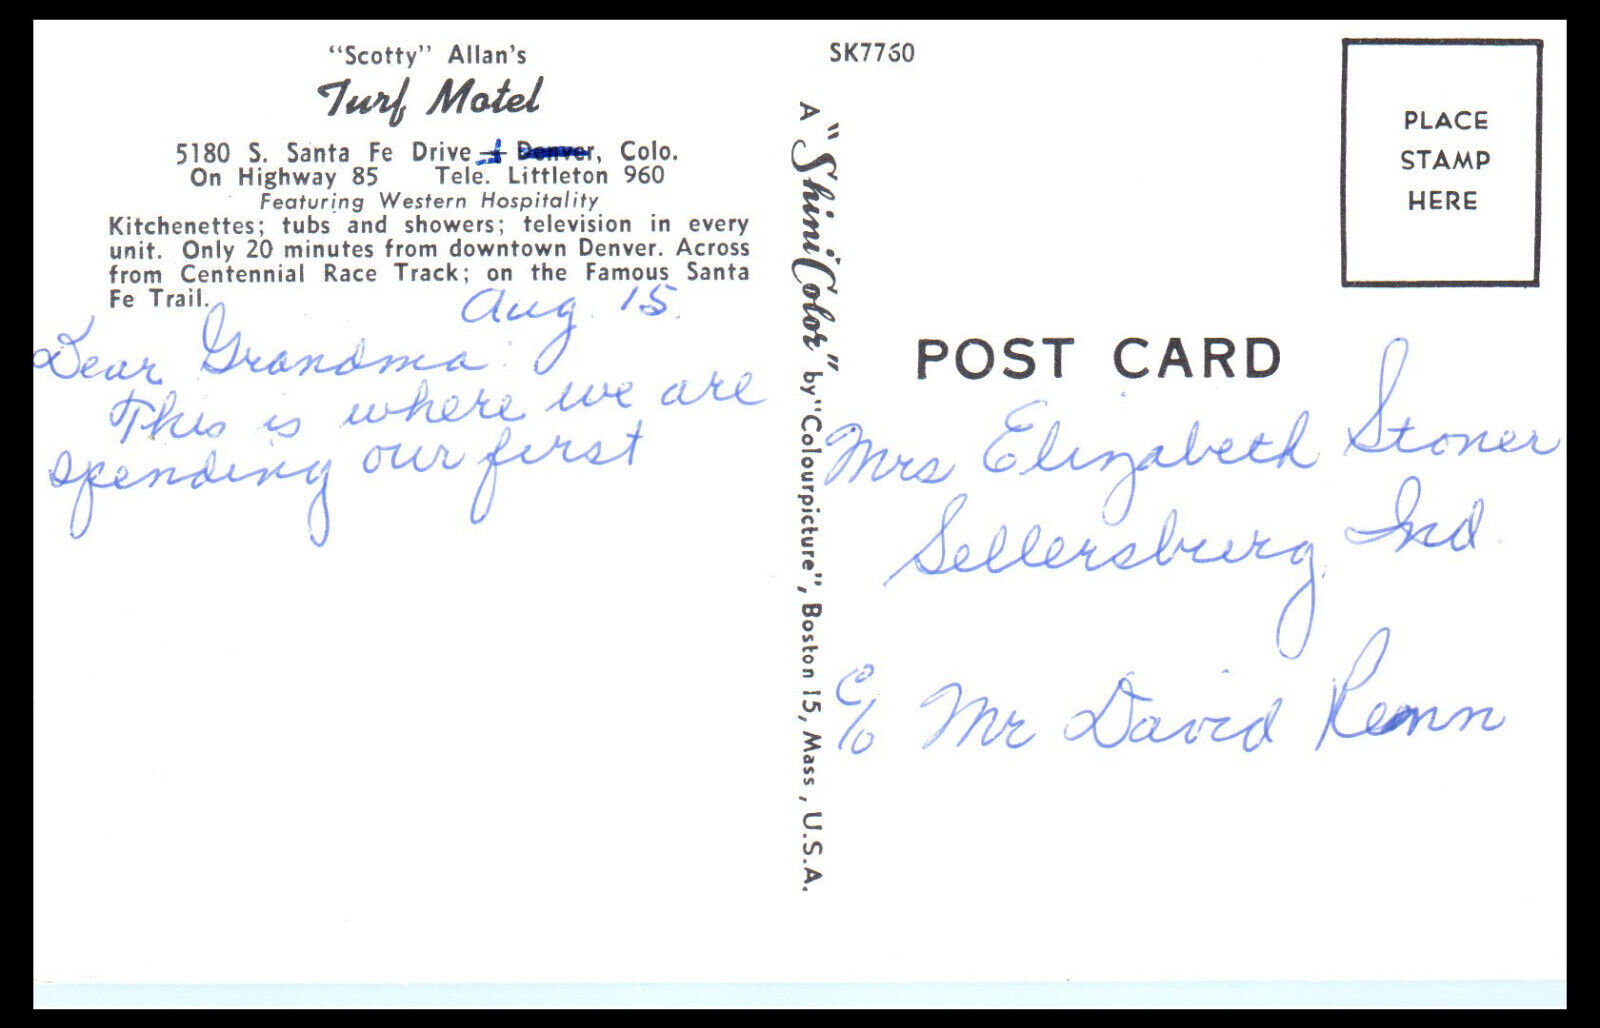 "Scotty" Allan's
Turf Motel
5180 S. Santa Fe Drive Denver, Colo.
On Highway 85 Tele. Littleton 960
Featuring Western Hospitality
Kitchenettes; tubs and showers; television in every
unit. Only 20 minutes from downtown Denver. Across
from Centennial Race Track; on the Famous Santa
Fe Trail.
Aug. 15.
Dear Grandma:
This is where we are
spending our first
SK7760
A "ShiniColor" by "Colourpicture", Boston 15, Mass., U.S.A.
PLACE
STAMP
HERE
POST CARD
Mrs Elizabeth Stoner
Sellersburg, Ind.
c/o Mr David Renn